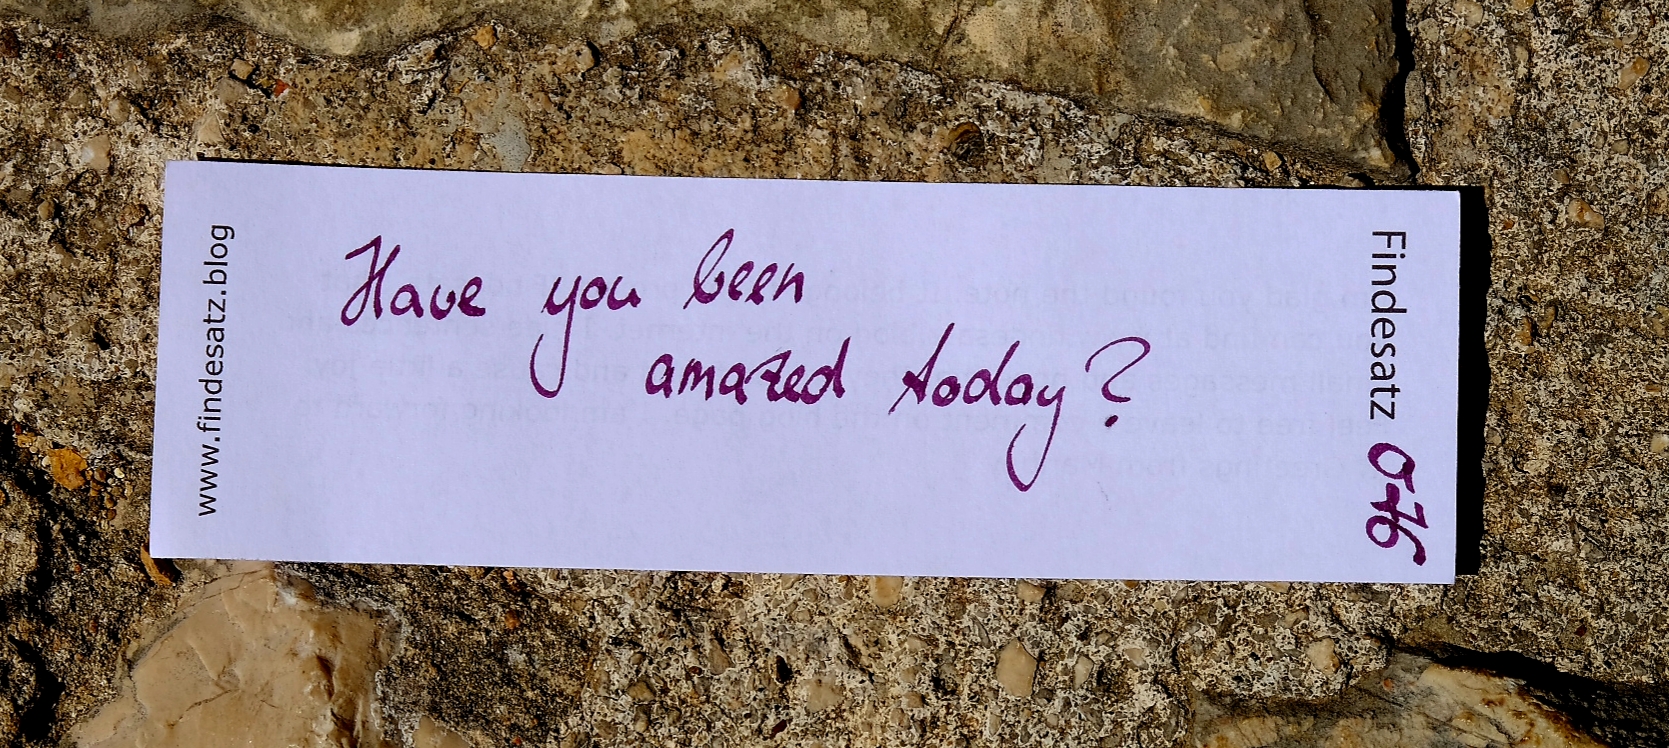 www.findesatz.blog
Have you been
amazed today?
Findesatz 076